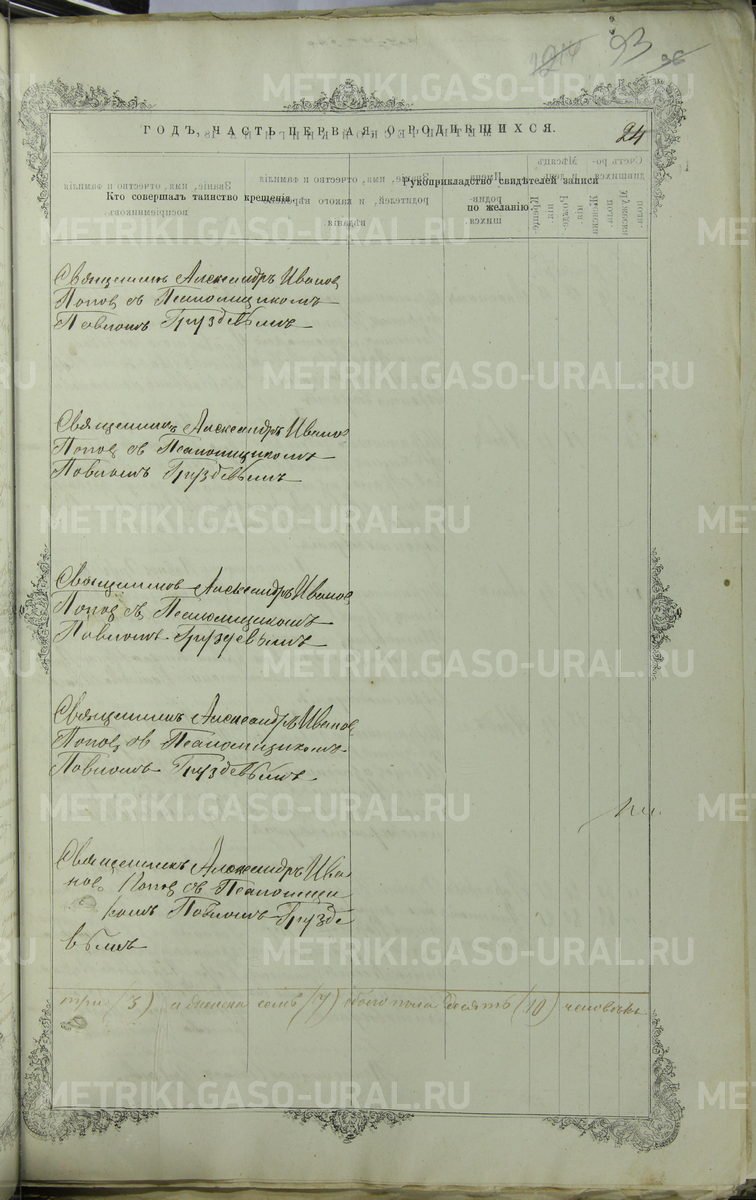 93
24
ГОДЪ, ЧАСТЬ ПЕРВАЯ, О РОДИВШИХСЯ.
Кто совершалъ таинство крещенія.
Рукоприкладство свидѣтелей записи по желанію.
Священникъ Александръ Иванов
Попов съ Псаломщикомъ
Павломъ Груздевымъ
Священникъ Александръ Ивано
Попов съ Псаломщикомъ
Павломъ Груздевымъ
Священникъ Александръ Иванов
Попов съ Псаломщикомъ
Павломъ Груздевымъ
Священникъ Александръ Иванов
Попов съ Псаломщикомъ
Павломъ Груздевымъ
Священникъ Александръ Ива
нов Попов съ Псаломщи
комъ Павломъ Грузде
вымъ
три (3) и женска семь (7) обоего пола десять (10) человѣкъ
METRIKI.GASO-URAL.RU